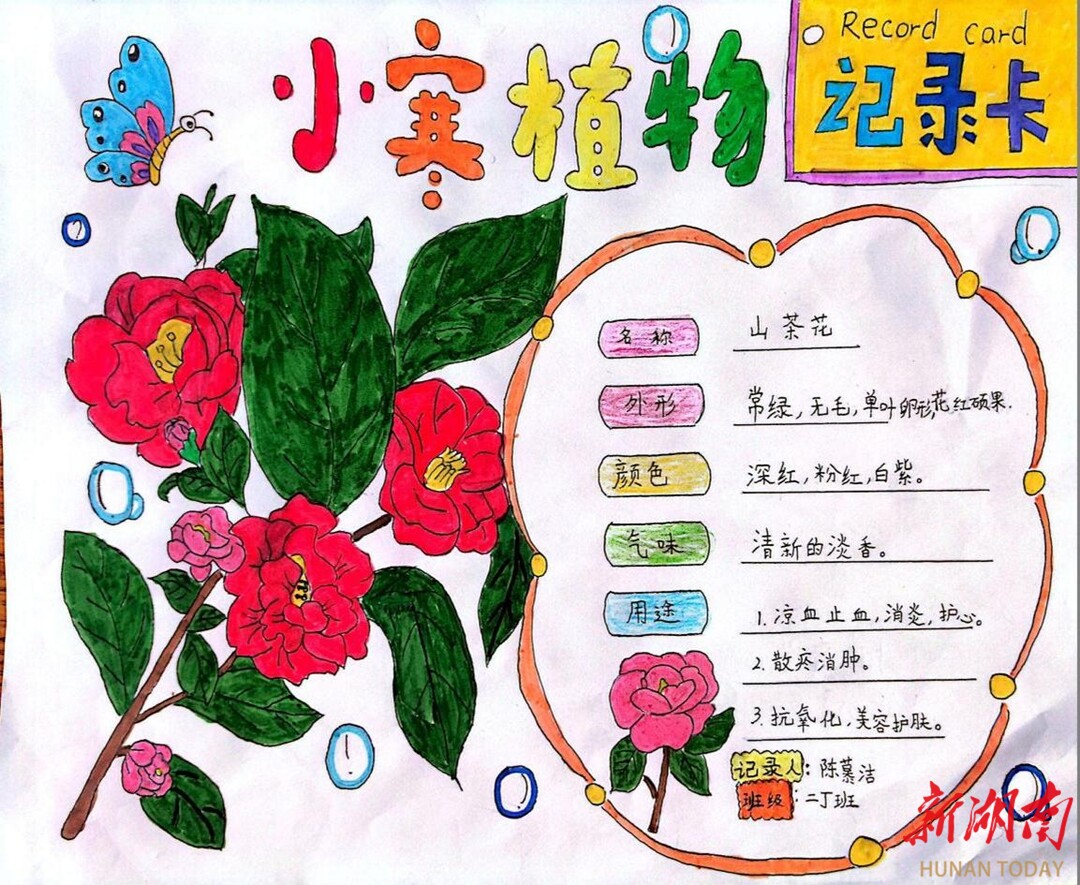 小寒植物
Record card
记录卡
名称 山茶花
外形 常绿,无毛,单叶卵形,花红硕果.
颜色 深红,粉红,白紫。
气味 清新的淡香。
用途 1.凉血止血,消炎,护心。
2.散疼消肿。
3.抗氧化,美容护肤。
记录人:陈慕洁
班级:二丁班
新湖南
HUNAN TODAY